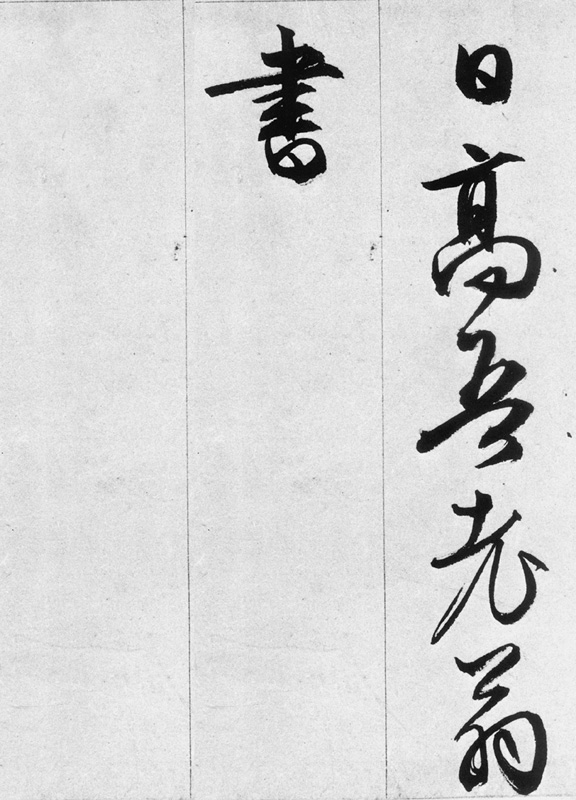 日高吾老翁
書